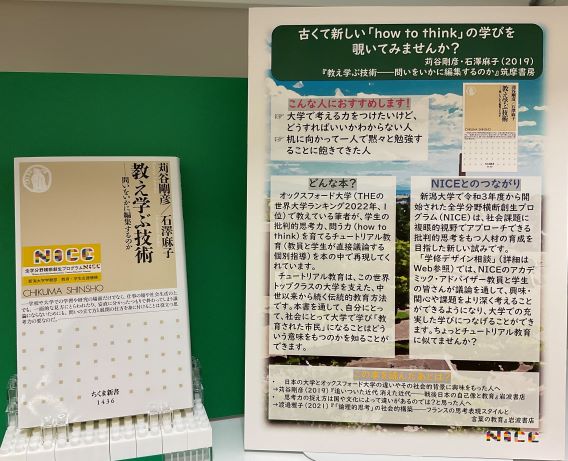 苅谷剛彦 石澤麻子
教え学ぶ技術
──問いをいかに編集するのか
NICE
全学分野横断創生プログラムNICE
新潟大学
CHIKUMA SHINSHO
ちくま新書
1436
古くて新しい「how to think」の学びを
覗いてみませんか?
苅谷剛彦・石澤麻子(2019)
『教え学ぶ技術──問いをいかに編集するのか』筑摩書房
こんな人におすすめします!
☞ 大学で考える力をつけたいけど、
どうすればいいかわからない人
☞ 机に向かって一人で黙々と勉強す
ることに飽きてきた人
教え学ぶ技術
どんな本?
オックスフォード大学(THEの
世界大学ランキング2022年、1
位)で教えている筆者が、学生の
批判的思考力、問う力(how to
think)を育てるチュートリアル教育
(教員と学生が直接議論する
個別指導)を本の中で再現してく
れています。
チュートリアル教育は、この世界
トップクラスの大学を支えた、中
世以来から続く伝統的教育方法
です。本書を通して、自分にとっ
て、社会にとって大学で学び「教
育された市民」になることはどう
いう意味をもつのかを知ることが
できます。
NICEとのつながり
新潟大学で令和3年度から
開始された全学分野横断創生プ
ログラム(NICE)は、社会課題に
複眼的視野でアプローチできる
批判的思考をもつ人材の育成を
目指した新しい試みです。
「学修デザイン相談」(詳細は
Web参照)では、NICEのアカデ
ミック・アドバイザー教員と学生
の皆さんが議論を通して、興味・
関心や課題をより深く考えること
ができるようになり、大学での充
実した学びにつなげることができ
ます。ちょっとチュートリアル教育
に似てますか?
この本を読んだあとは?
・ 日本の大学とオックスフォード大学の違いやその社会的背景に興味をもった人へ
→苅谷剛彦(2019)『追いついた近代 消えた近代──戦後日本の自己像と教育』岩波書店
・ 思考力の捉え方は国や文化によって違いがあるのでは?と思った人へ
→渡邉雅子(2021)『「論理的思考」の社会的構築──フランスの思考表現スタイルと
言葉の教育』岩波書店
NICE